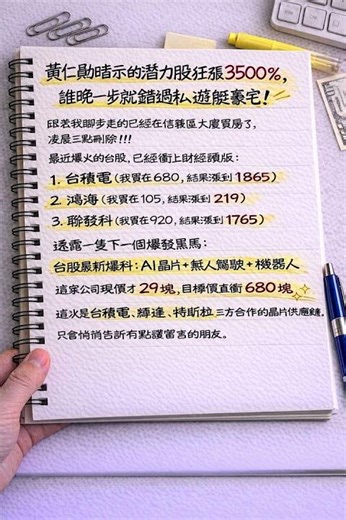 黃仁勳暗示的潛力股狂漲3500%,
誰晚一步就錯過私遊艇豪宅!
跟著我腳步走的已經在信義區大廈買房了,
凌晨三點刪除!!!
最近爆火的台股,已經衝上財經頭版:
1. 台積電(我買在680,結果漲到1865)
2. 鴻海(我買在105,結果漲到219)
3. 聯發科(我買在920,結果漲到1765)
透露一隻下一個爆發黑馬:
台股最新爆料:AI晶片+無人駕駛+機器人
這家公司現價才29塊,目標價直衝680塊
這次是台積電、輝達、特斯拉三方合作的晶片供應鏈,
只會悄悄告訴有點讚留言的朋友。